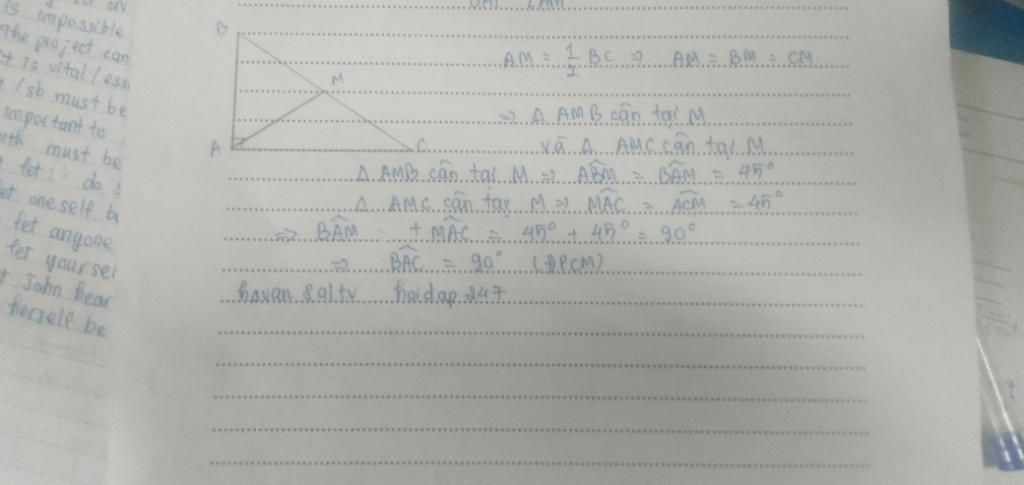 is impossible
The project can
It is vital / ess
/ sb must be
important to
must be
let : do s
let oneself b
let anyone
let yoursel
John hear
herself be
BÀI LÀM
B
M
A
C
AM = 1/2 BC => AM = BM = CM
=> Δ AMB cân tại M
và Δ AMC cân tại M
Δ AMB cân tại M => ABM = BAM = 45°
Δ AMC cân tại M => MAC = ACM = 45°
=> BAM + MAC = 45° + 45° = 90°
=> BAC = 90° (ĐPCM)
hoidap247